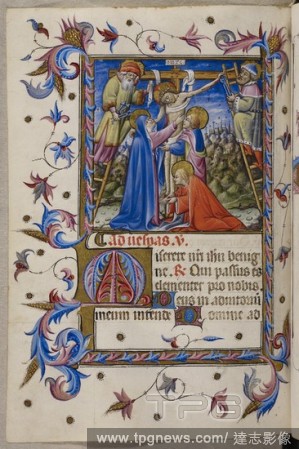 INRI
ad vespas. V.
iserere nr̄i ih̄u benig
ne. R. Qui passus es
clementer pro nobis.
eus in adiutoriū
meum intende omine ad
TPG
www.tpgnews.com/ 達志影像